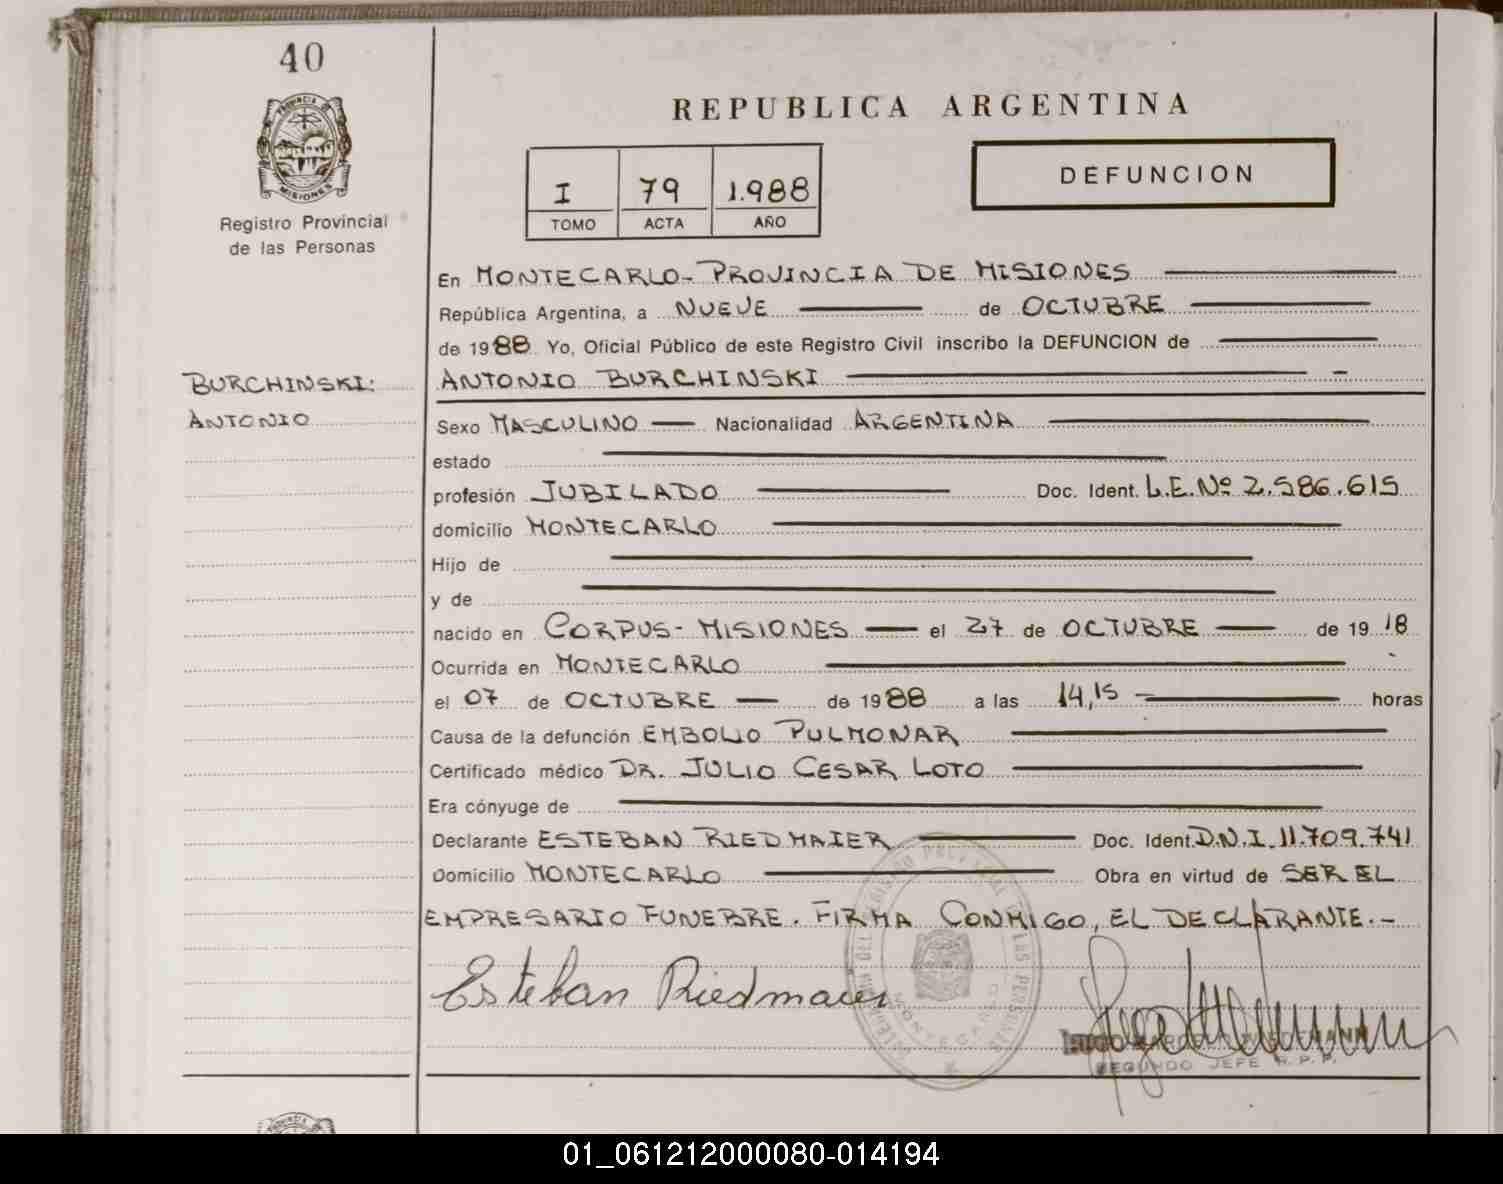 40
PROVINCIA DE
MISIONES
Registro Provincial
de las Personas
REPUBLICA ARGENTINA
I 79 1.988
TOMO ACTA AÑO
DEFUNCION
En MONTECARLO - PROVINCIA DE MISIONES
República Argentina, a NUEVE de OCTUBRE
de 1988 Yo, Oficial Público de este Registro Civil inscribo la DEFUNCION de
BURCHINSKI:
ANTONIO BURCHINSKI
ANTONIO
Sexo MASCULINO Nacionalidad ARGENTINA
estado
profesión JUBILADO Doc. Ident. L.E.Nº 2.586.615
domicilio MONTECARLO
Hijo de
y de
nacido en CORPUS - MISIONES el 27 de OCTUBRE de 1918
Ocurrida en MONTECARLO
el 07 de OCTUBRE de 1988 a las 14,15 horas
Causa de la defunción EMBOLIO PULMONAR
Certificado médico DR. JULIO CESAR LOTO
Era cónyuge de
Declarante ESTEBAN RIEDMAIER Doc. Ident. D.N.I. 11.709.741
Domicilio MONTECARLO Obra en virtud de SER EL
EMPRESARIO FUNEBRE. FIRMA CONMIGO, EL DECLARANTE.-
Esteban Riedmaier
MONTECARLO
SEGUNDO JEFE R. P. P.
01_061212000080-014194